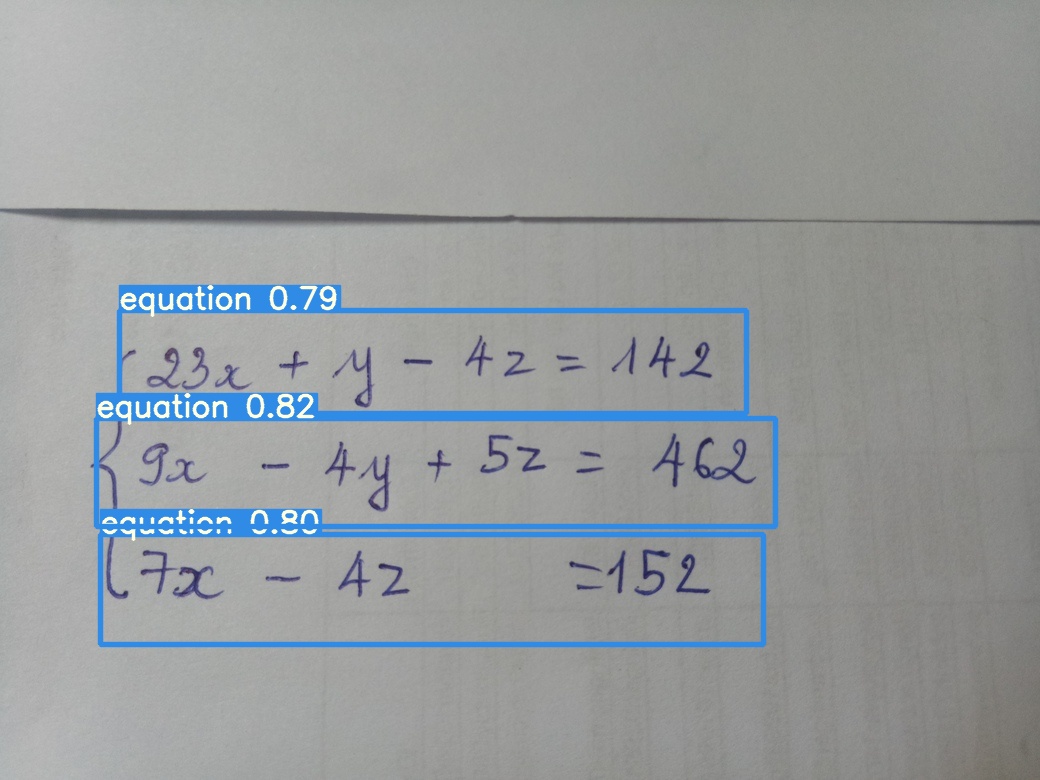 equation 0.79
23x + y - 4z = 142
equation 0.82
9x - 4y + 5z = 462
equation 0.80
7x - 4z =152